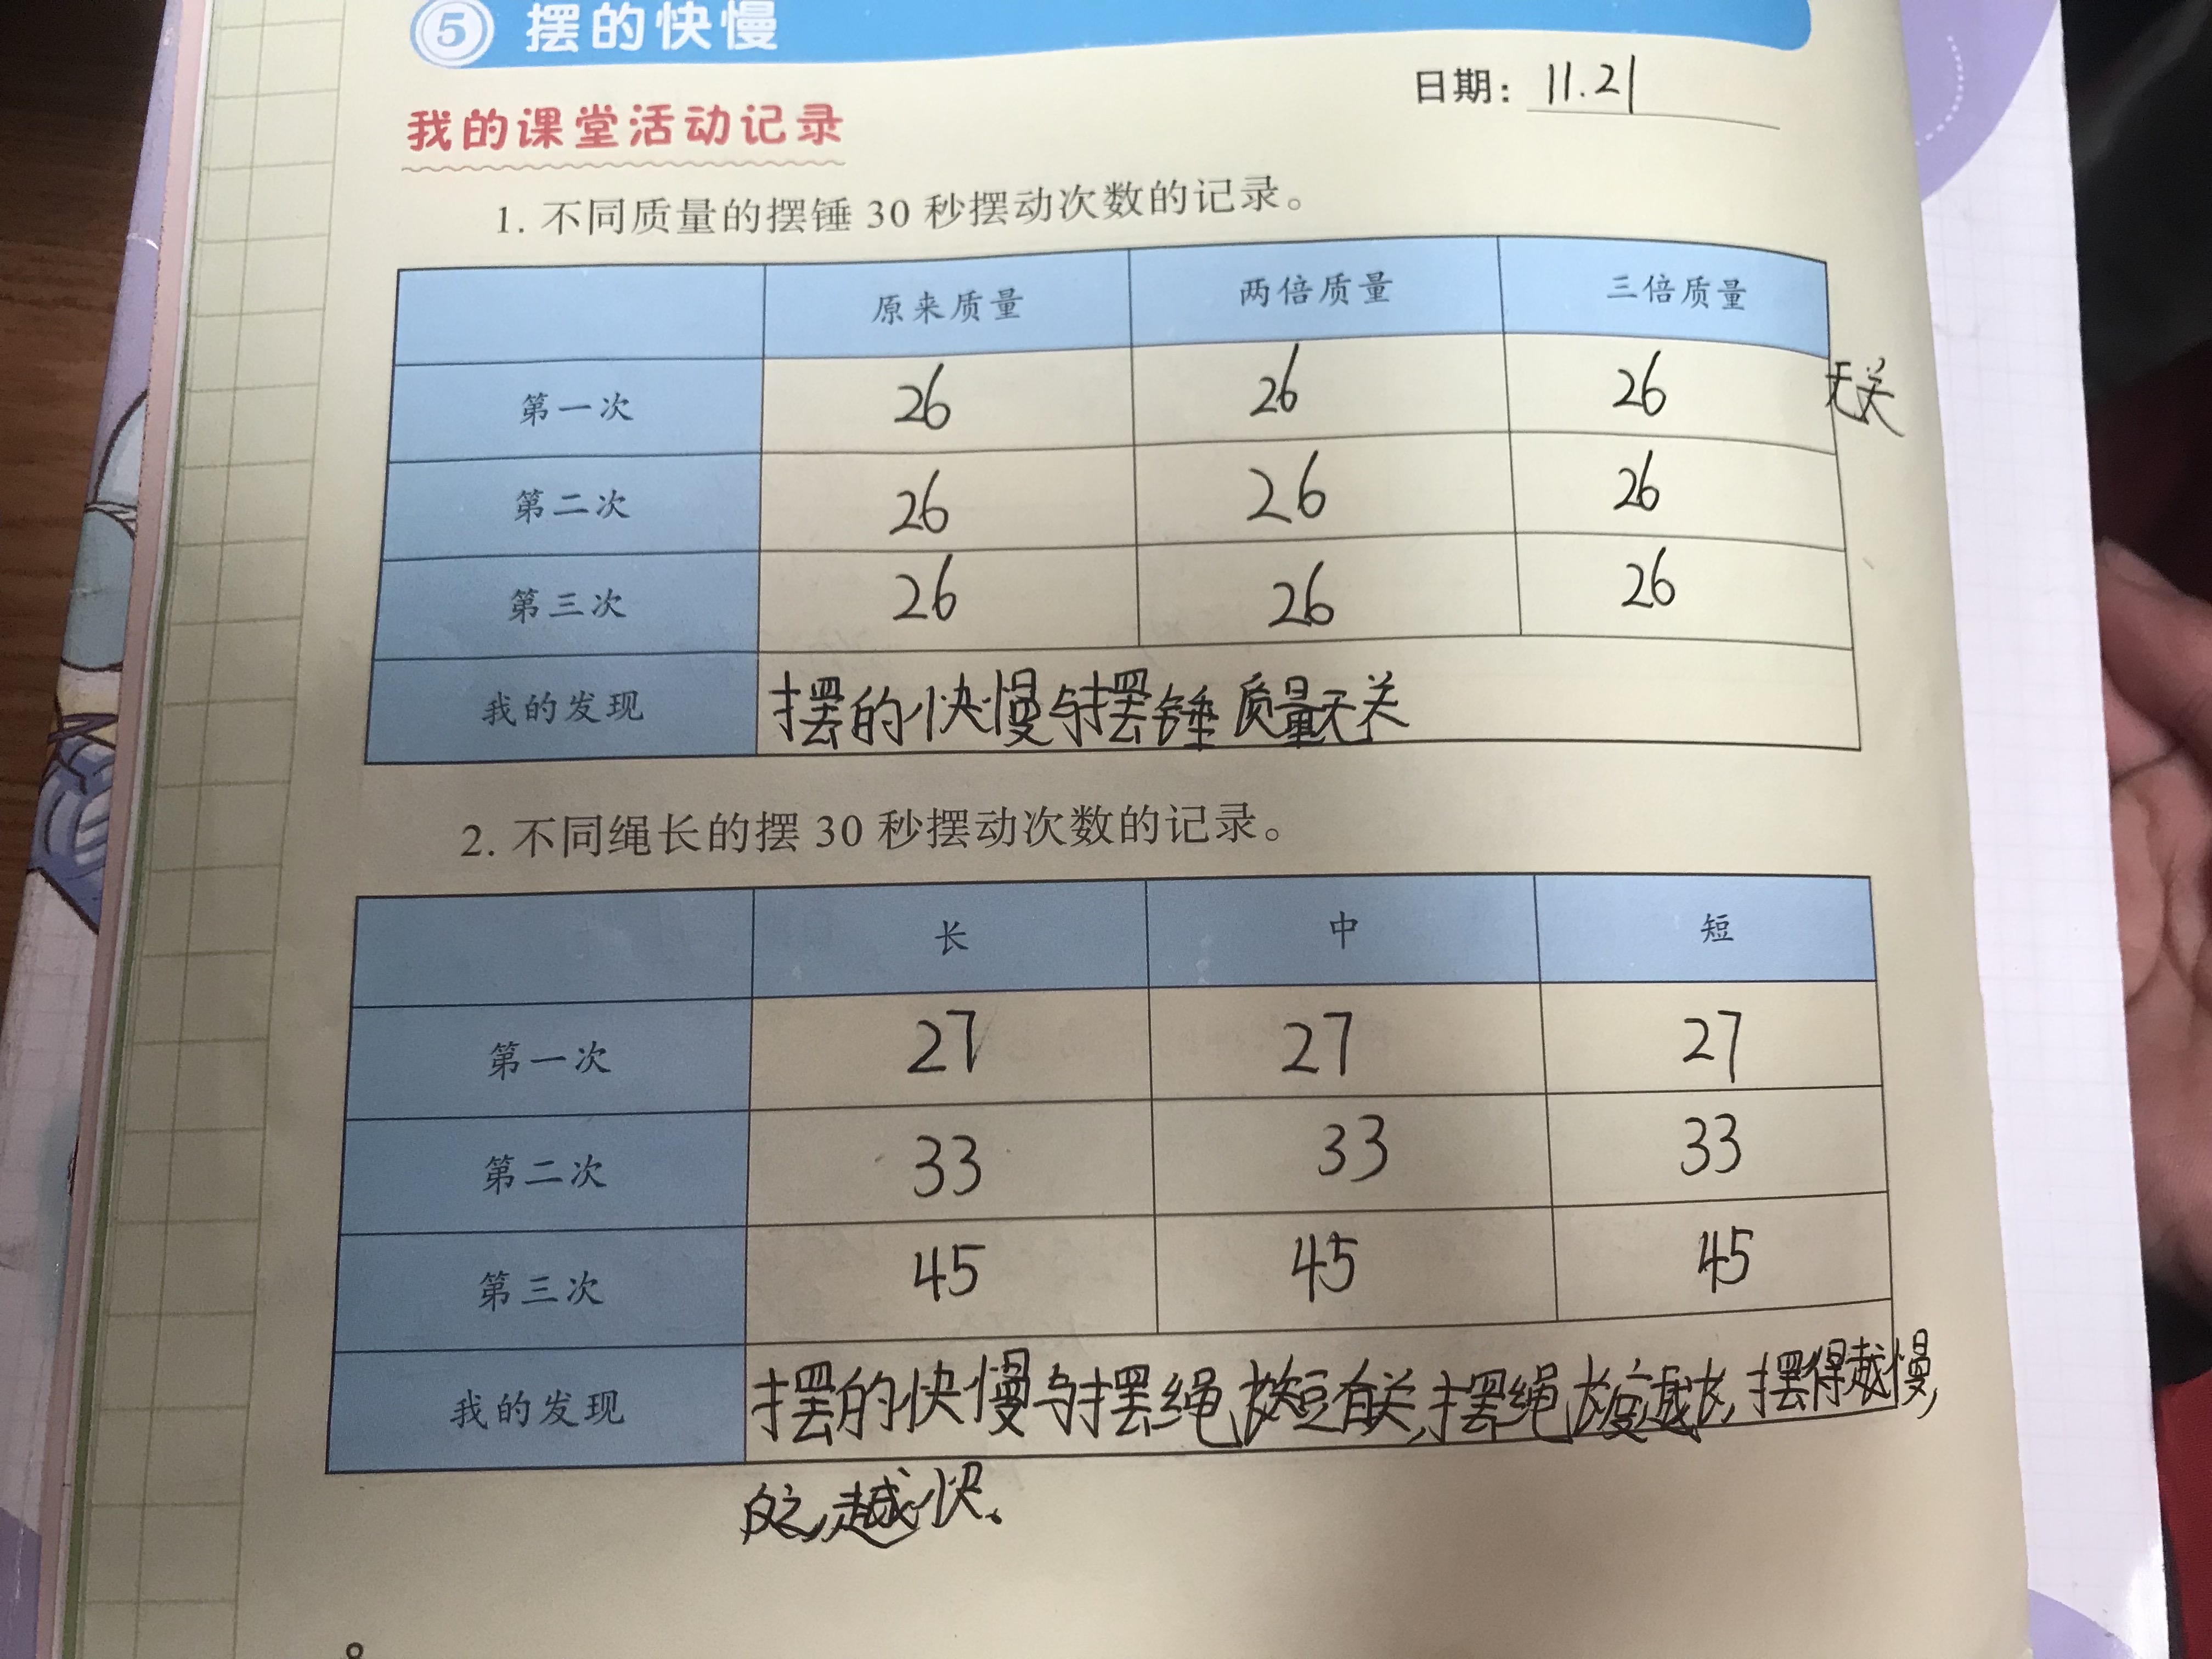 5 摆的快慢
日期：11.21
我的课堂活动记录
1. 不同质量的摆锤 30 秒摆动次数的记录。
原来质量 两倍质量 三倍质量
第一次 26 26 26 无关
第二次 26 26 26
第三次 26 26 26
我的发现 摆的快慢与摆锤质量无关
2. 不同绳长的摆 30 秒摆动次数的记录。
长 中 短
第一次 27 27 27
第二次 33 33 33
第三次 45 45 45
我的发现 摆的快慢与摆绳长短有关,摆绳长度越长,摆得越慢,
反之,越快。